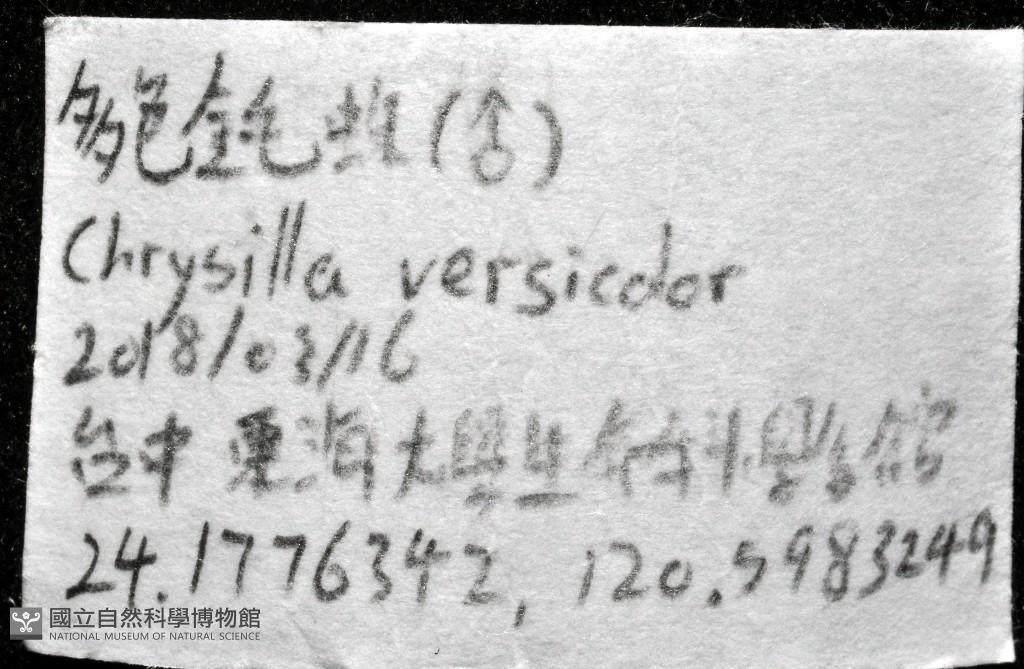 多色金毛蛛(♂)
Chrysilla versicolor
2018/03/16
台中 東海大學生命科學館
24.1776342, 120.5983249
國立自然科學博物館
NATIONAL MUSEUM OF NATURAL SCIENCE